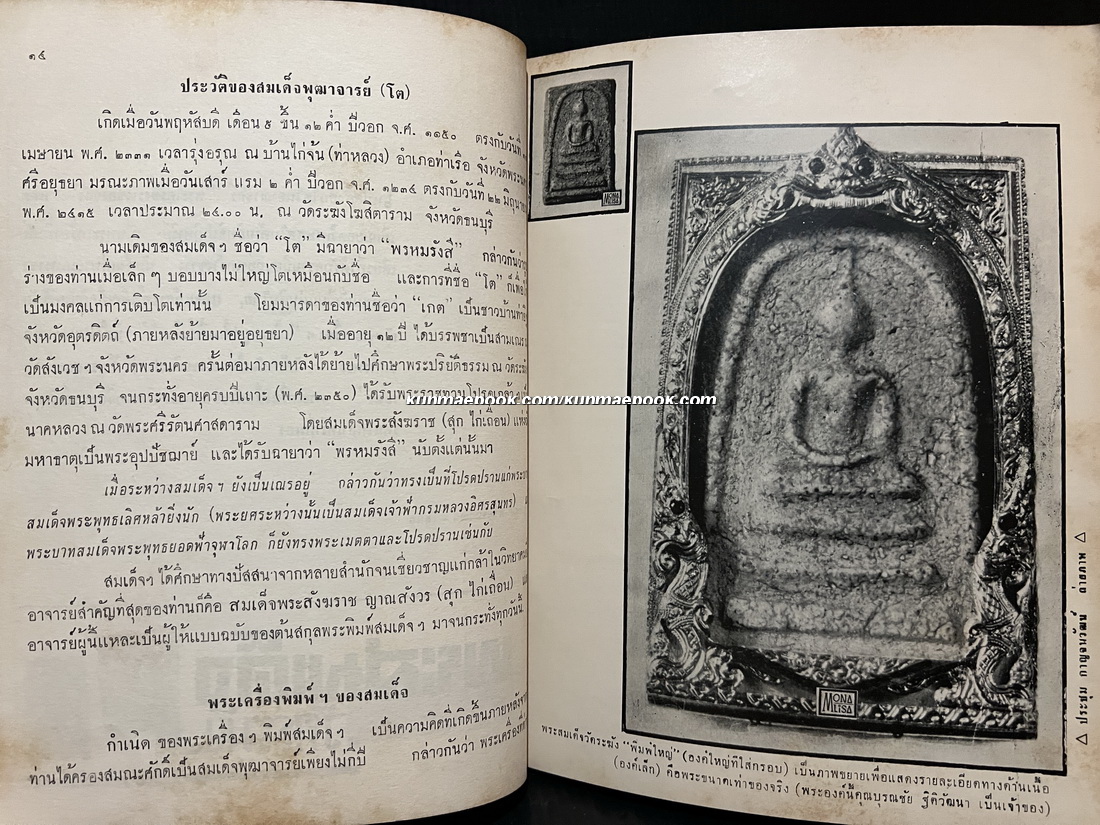 ๑๔
ประวัติของสมเด็จพุฒาจารย์ (โต)
เกิดเมื่อวันพฤหัสบดี เดือน ๕ ขึ้น ๑๒ ค่ำ ปีวอก จ.ศ. ๑๑๕๐ ตรงกับวันที่
เมษายน พ.ศ. ๒๓๓๑ เวลารุ่งอรุณ ณ บ้านไก่จ้น (ท่าหลวง) อำเภอท่าเรือ จังหวัดพระนคร
ศรีอยุธยา มรณะภาพเมื่อวันเสาร์ แรม ๒ ค่ำ ปีวอก จ.ศ. ๑๒๓๔ ตรงกับวันที่ ๒๒ มิถุนายน
พ.ศ. ๒๔๑๕ เวลาประมาณ ๒๔.๐๐ น. ณ วัดระฆังโฆสิตาราม จังหวัดธนบุรี
นามเดิมของสมเด็จฯ ชื่อว่า “โต” มีฉายาว่า “พรหมรังสี” กล่าวกันว่า
ร่างของท่านเมื่อเล็กๆ บอบบางไม่ใหญ่โตเหมือนกับชื่อ และการที่ชื่อ “โต” ก็เพื่อ
เป็นมงคลแก่การเติบโตเท่านั้น โยมมารดาของท่านชื่อว่า “เกต” เป็นชาวบ้าน
จังหวัดอุตรดิตถ์ (ภายหลังย้ายมาอยู่อยุธยา) เมื่ออายุ ๑๒ ปี ได้บรรพชาเป็นสามเณร
วัดสังเวชฯ จังหวัดพระนคร ครั้นต่อมาภายหลังได้ย้ายไปศึกษาพระปริยัติธรรม ณ วัดระฆัง
จังหวัดธนบุรี จนกระทั่งอายุครบปีเถาะ (พ.ศ. ๒๓๕๐) ได้รับพระราชทานโปรดเกล้าฯ
นาคหลวง ณ วัดพระศรีรัตนศาสดาราม โดยสมเด็จพระสังฆราช (สุก ไก่เถื่อน) แห่ง
มหาธาตุเป็นพระอุปัชฌาย์ และได้รับฉายาว่า “พรหมรังสี” นับตั้งแต่นั้นมา
เมื่อระหว่างสมเด็จฯ ยังเป็นเณรอยู่ กล่าวกันว่าทรงเป็นที่โปรดปรานแก่
สมเด็จพระพุทธเลิศหล้ายิ่งนัก (พระยศระหว่างนั้นเป็นสมเด็จเจ้าฟ้ากรมหลวงอิศรสุนทร)
พระบาทสมเด็จพระพุทธยอดฟ้าจุฬาโลก ก็ยังทรงพระเมตตาและโปรดปรานเช่นกัน
สมเด็จฯ ได้ศึกษาทางปัสสนาจากหลายสำนักจนเชี่ยวชาญแก่กล้าในวิทยาคม
อาจารย์สำคัญที่สุดของท่านก็คือ สมเด็จพระสังฆราช ญาณสังวร (สุก ไก่เถื่อน)
อาจารย์ผู้นี้แหละเป็นผู้ให้แบบฉบับของต้นสกุลพระพิมพ์สมเด็จฯ มาจนกระทั่งทุกวันนี้
พระเครื่องพิมพ์ฯ ของสมเด็จ
กำเนิด ของพระเครื่องฯ พิมพ์สมเด็จฯ เป็นความคิดที่เกิดขึ้นภายหลัง
ท่านได้ครองสมณะศักดิ์เป็นสมเด็จพุฒาจารย์เพียงไม่กี่ปี กล่าวกันว่า พระเครื่อง
MONA LISA
MONA
LISA
△ ประชุม กาญจนวัฒน์ ถ่ายภาพ △
พระสมเด็จวัดระฆัง “พิมพ์ใหญ่” (องค์ใหญ่ที่ใส่กรอบ) เป็นภาพขยายเพื่อแสดงรายละเอียดทางด้านเนื้อ
(องค์เล็ก) คือพระขนาดเท่าของจริง (พระองค์นี้คุณบุรณชัย ฐิติวัฒนา เป็นเจ้าของ)
kunmaebook.com/kunmaebook.com